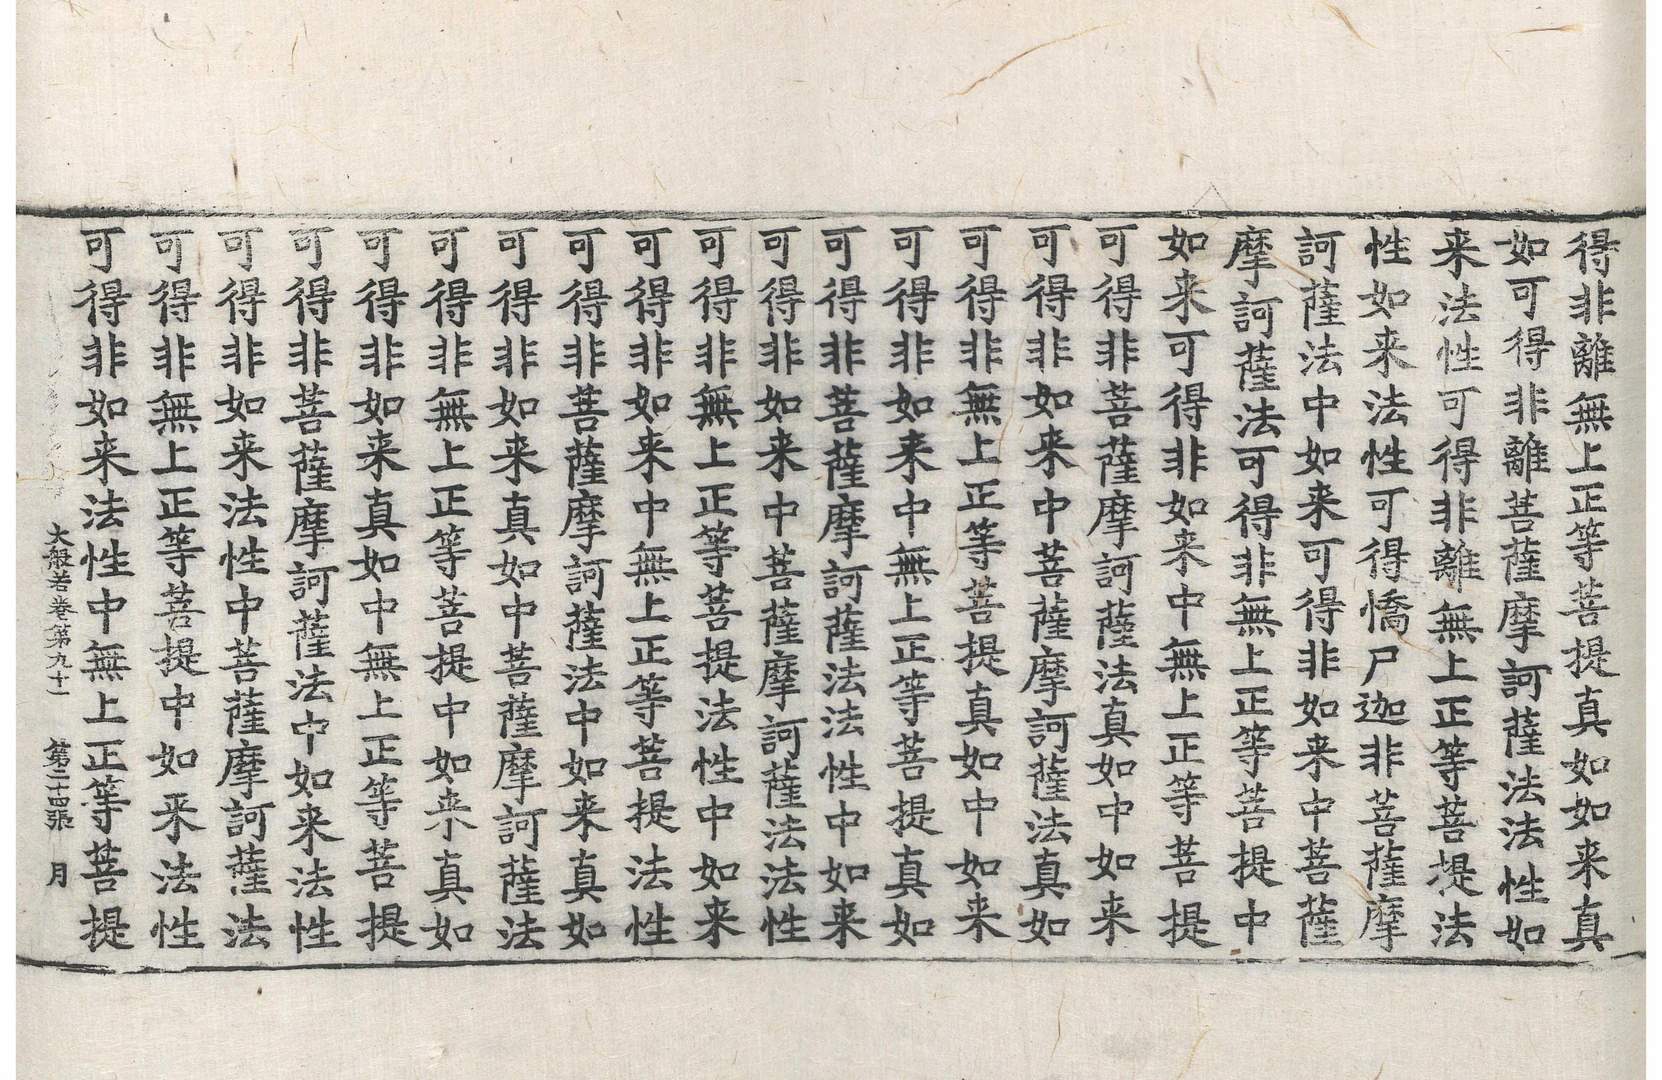 得非離無上正等菩提真如如来真
如可得非離菩薩摩訶薩法法性如
来法性可得非離無上正等菩提法
性如来法性可得憍尸迦非菩薩摩
訶薩法中如来可得非如来中菩薩
摩訶薩法可得非無上正等菩提中
如来可得非如来中無上正等菩提
可得非菩薩摩訶薩法真如中如来
可得非如来中菩薩摩訶薩法真如
可得非無上正等菩提真如中如来
可得非如来中無上正等菩提真如
可得非菩薩摩訶薩法法性中如来
可得非如来中菩薩摩訶薩法法性
可得非無上正等菩提法性中如来
可得非如来中無上正等菩提法性
可得非菩薩摩訶薩法中如来真如
可得非如来真如中菩薩摩訶薩法
可得非無上正等菩提中如来真如
可得非如来真如中無上正等菩提
可得非菩薩摩訶薩法中如来法性
可得非如来法性中菩薩摩訶薩法
可得非無上正等菩提中如来法性
可得非如来法性中無上正等菩提
大般若卷第九十一 第二十四張 月